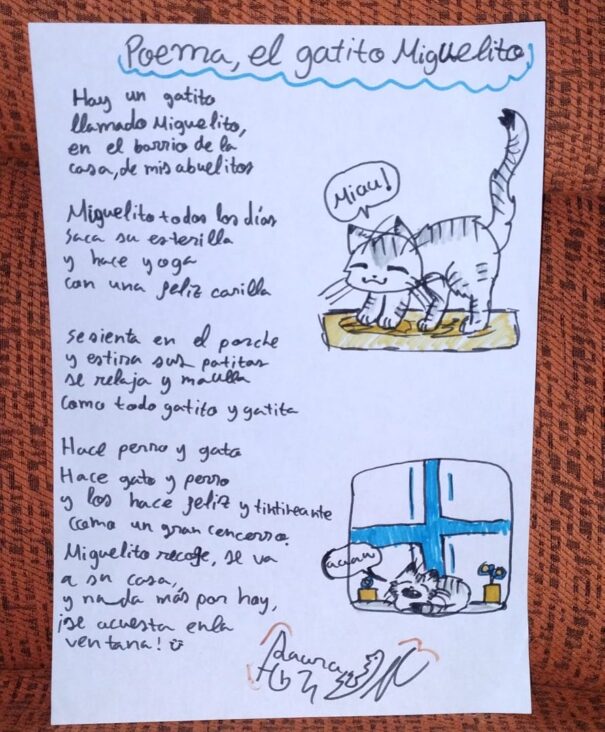 Poema, el gatito Miguelito
Hay un gatito
llamado Miguelito,
en el barrio de la
casa, de mis abuelitos
Miau!
Miguelito todos los días
saca su esterilla
y hace yoga
con una feliz carilla
se sienta en el porche
y estira sus patitas
se relaja y maulla
como todo gatito y gatita
Hace perro y gato
Hace gato y perro
y los hace feliz y tintineante
como un gran cencerro.
Miguelito recoge, se va
a su casa,
y nada más por hoy,
¡se acuesta en la
ventana!
Laura